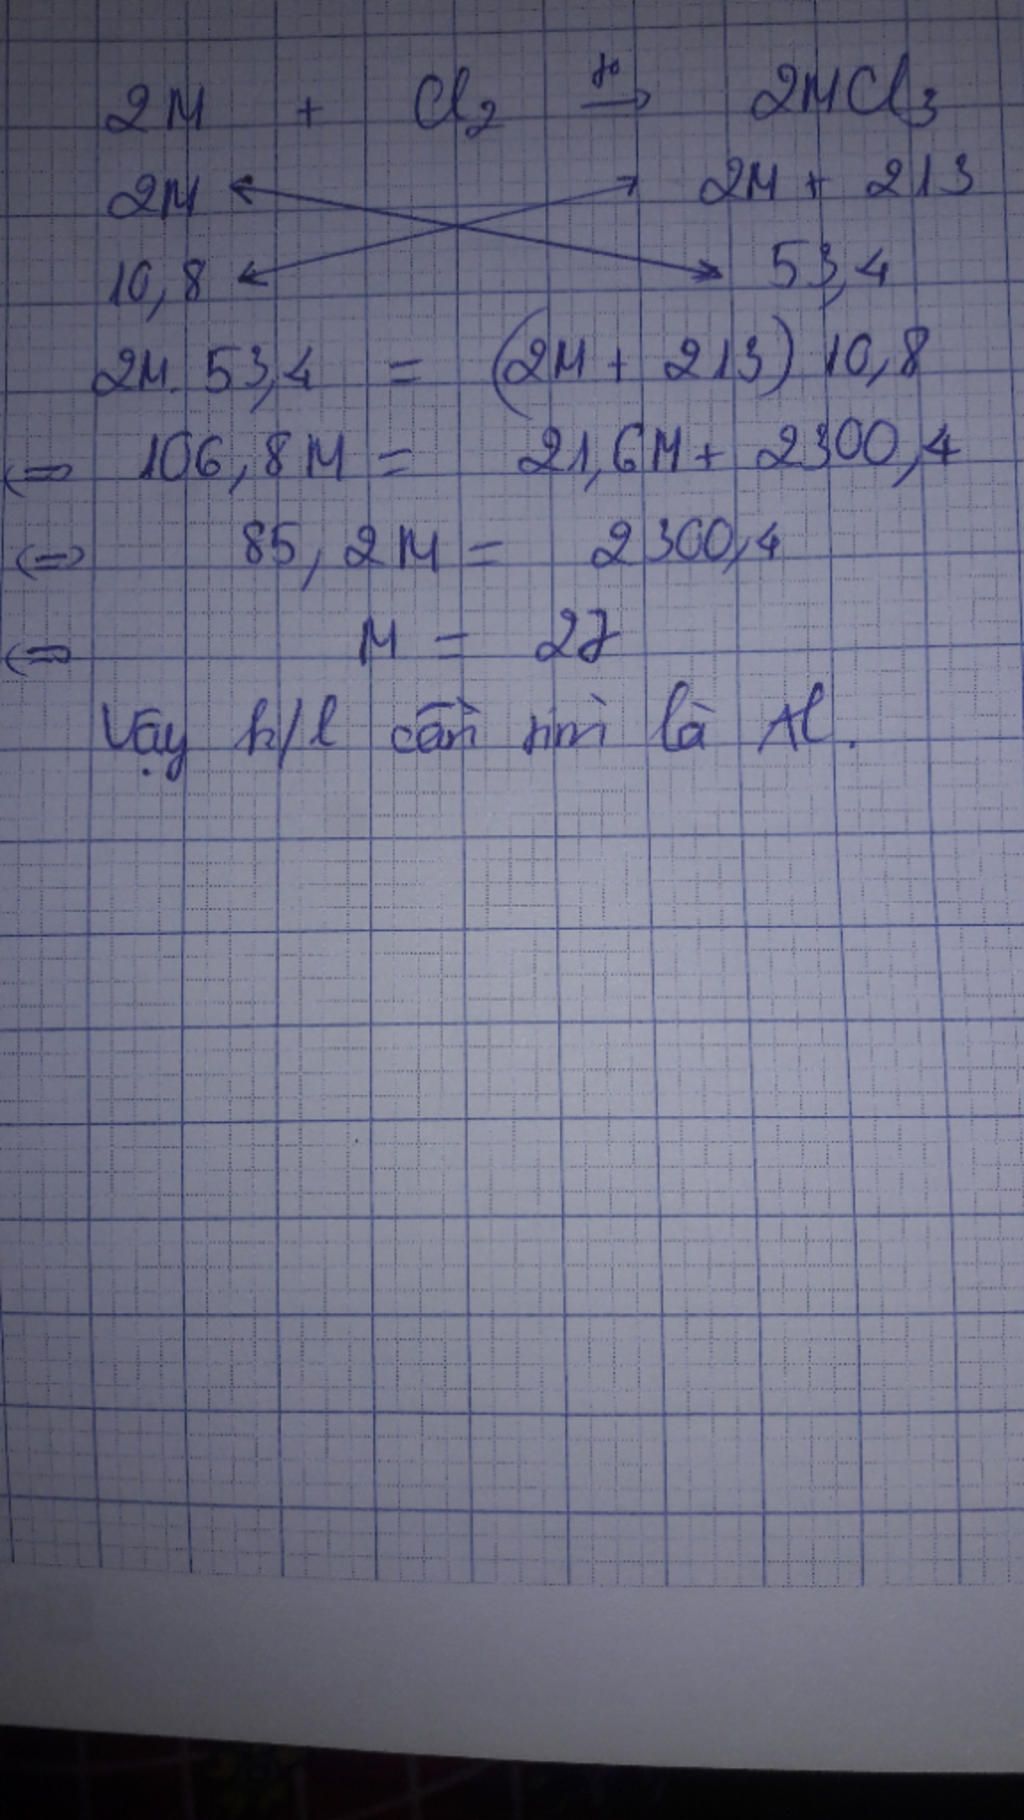 2M + Cl₂ →(t°) 2MCl₃
2M 2M + 213
10,8 53,4
2M. 53,4 = (2M + 213) 10,8
⇔ 106,8M = 21,6M + 2300,4
⇔ 85,2M = 2300,4
⇔ M = 27
Vậy k/l cần tìm là Al.